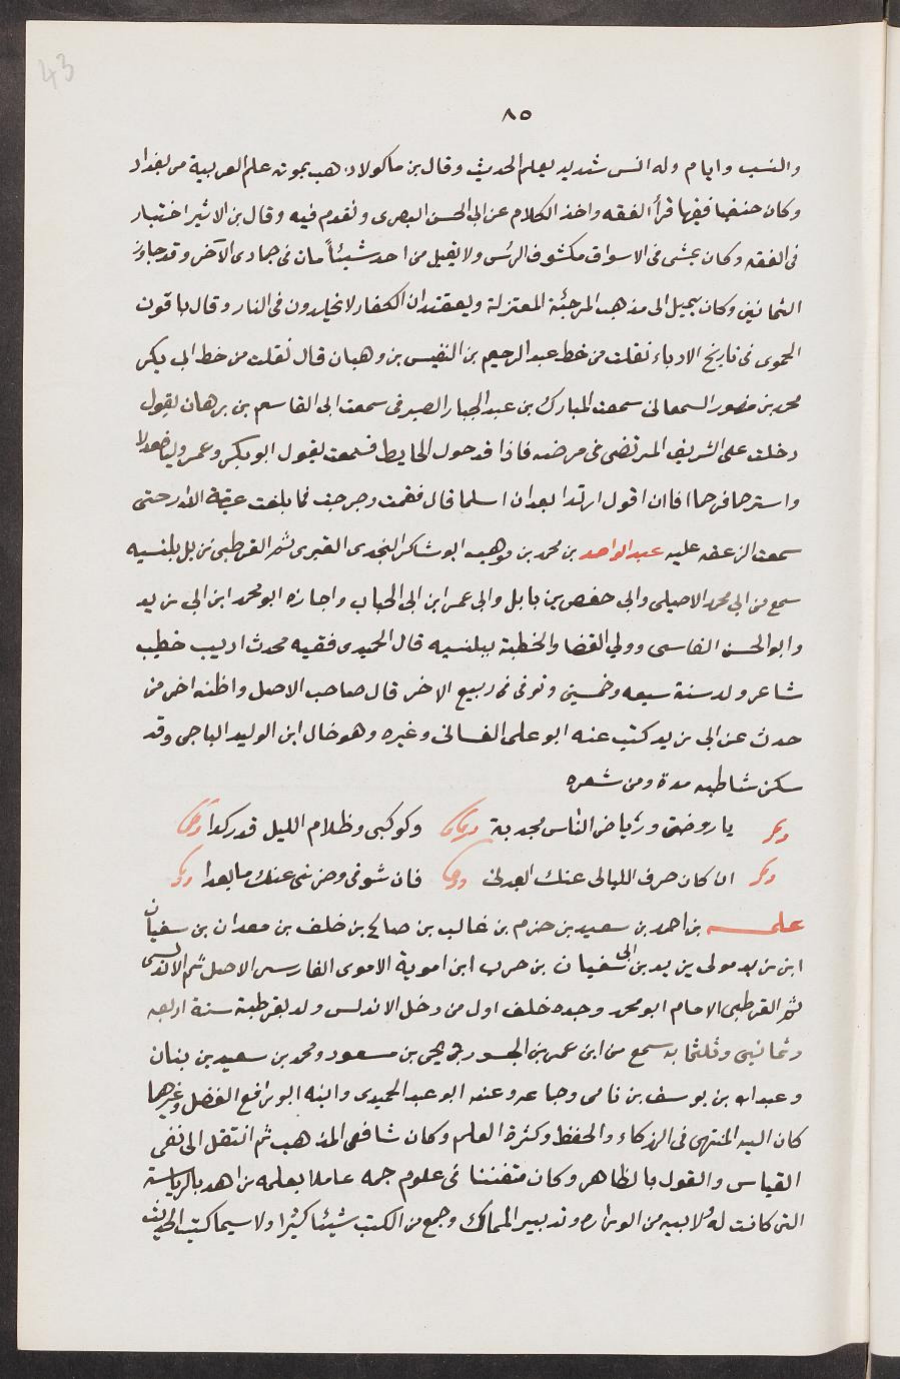 43
٨٥
والنسب وايام وله انس شديد بعلم الحديث وقال بن ماكولا ذهب بموته علم العربية من بغداد
وكان حنفيا فقيها قرأ الفقه واخذ الكلام عن ابى الحسن البصرى وتقدم فيه وقال بن الاثير اختيار
فى الفقه وكان يمشى فى الاسواق مكشوف الرئس ولا يقبل من احد شيئاً مات فى جمادى الآخر وقد جاوز
الثمانين وكان يميل الى مذهب المرجئة المعتزلة ويعتقد ان الكفار لا يخلدون فى النار وقال ياقوت
الحموى فى تاريخ الادباء نقلت من خط عبد الرحيم بن النفيس بن وهبان قال نقلت من خط ابى بكر
محمد بن منصور السمعانى سمعت المبارك بن عبد الجبار الصيرفى سمعت ابى القاسم بن برهان يقول
دخلت على الشريف المرتضى فى مرضه فاذا قد حول الحايط فسمعت يقول ابو بكر وعمر وليا فعدلا
واسترحما فرحما افاان اقول ارتدا بعد ان اسلما قال فقمت وخرجت فما بلغت عتبة الدار حتى
سمعت الزعقه عليه عبد الواحد بن محمد بن موهب ابو شاكر التجيدى القبرى ثم القرطبى نزيل بلنسيه
سمع من ابى محمد الاصيلى وابى حفص بن بابل وابى عمر ابن ابى الحباب واجازه ابو محمد ابن ابى زيد
وابو الحسن القاسى وولي القضا والخطبة ببلنسيه قال الحميدى فقيه محدث اديب خطيب
شاعر ولد سنة سبعه وخمسين وتوفى فى ربيع الاخر قال صاحب الاصل واظنه اخر من
حدث عن ابى زيد كتب عنه ابو على الغسانى وغيره وهو خال ابن الوليد الباجى وقد
سكن شاطبه مدة ومن شعره
يا روضتى ورياض الناس مجدبة وكوكبى وظلام الليل قد ركدا
ان كان صرف الليالى عنك ابعدنى فان شوقى وحزنى عنك ما بعدا
على بن احمد بن سعيد بن حزم بن غالب بن صالح بن خلف بن معدان بن سفيان
ابن يزيد مولى يزيد بن ابى سفيان بن حرب ابن اموية الاموى الفارسى الاصل ثم الاندلسى
ثم القرطبى الامام ابو محمد وجده خلف اول من دخل الاندلس ولد بقرطبة سنة اربعه
وثمانين وثلثمايه سمع من ابن عمر بن الجسور ويحيى بن مسعود ومحمد بن سعيد بن بنان
وعبد الله بن يوسف بن نامى وجماعه وعنه ابو عبد الحميدى وابنه ابو رافع الفضل وغيرهما
كان اليه المنتهى فى الذكاء والحفظ وكثرة العلم وكان شافعى المذهب ثم انتقل الى نفى
القياس والقول بالظاهر وكان متفننا فى علوم جمه عاملا بعلمه زاهد بالرياسة
التى كانت له ولابيه من الوزاره وتدبير الممالك وجمع من الكتب شيئا كثيرا ولا سيما كتب الحديث